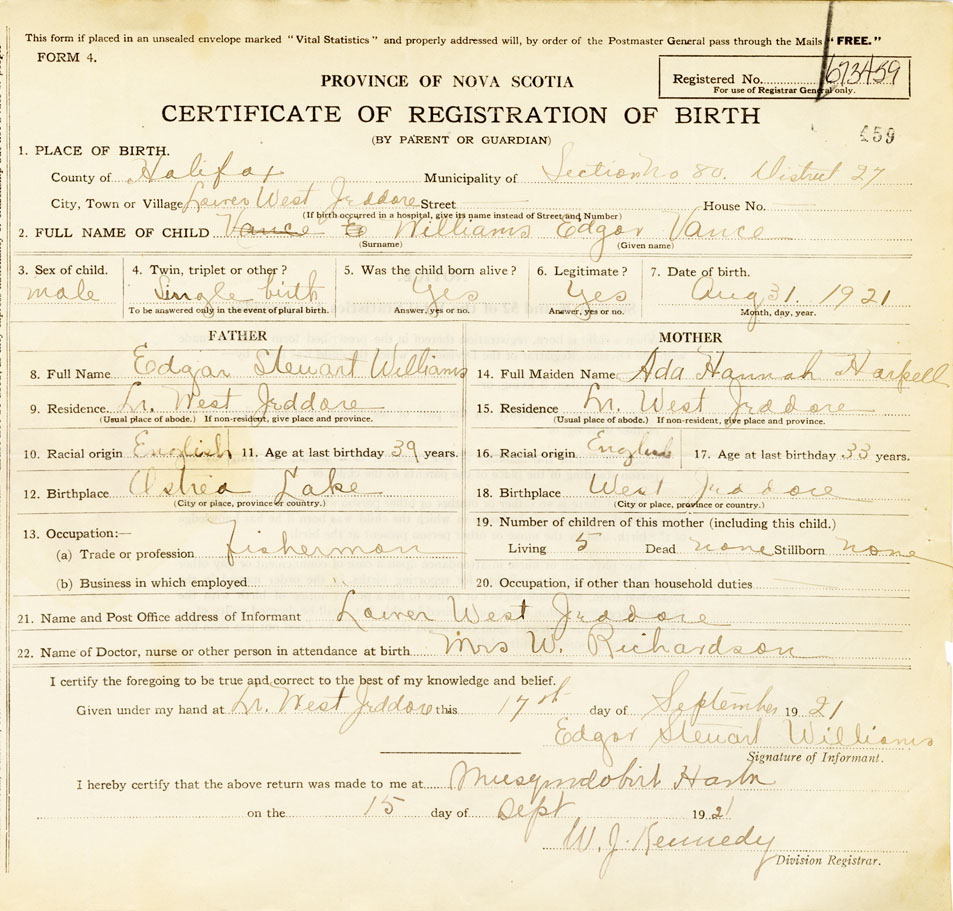 This form if placed in an unsealed envelope marked "Vital Statistics" and properly addressed will, by order of the Postmaster General pass through the Mails "FREE."
FORM 4.
PROVINCE OF NOVA SCOTIA
Registered No. 673459
For use of Registrar General only.
CERTIFICATE OF REGISTRATION OF BIRTH
(BY PARENT OR GUARDIAN)
459
1. PLACE OF BIRTH.
County of Halifax Municipality of Section No 80. District 27
City, Town or Village Lower West Jeddore Street House No.
(If birth occurred in a hospital, give its name instead of Street and Number)
2. FULL NAME OF CHILD Vance E Williams Edgar Vance
(Surname) (Given name)
3. Sex of child. 4. Twin, triplet or other? 5. Was the child born alive? 6. Legitimate? 7. Date of birth.
male Single birth Yes Yes Aug 31. 1921
To be answered only in the event of plural birth. Answer, yes or no. Answer, yes or no. Month, day, year.
FATHER
8. Full Name Edgar Stewart Williams
9. Residence. Lr. West Jeddore
(Usual place of abode.) If non-resident, give place and province.
10. Racial origin English 11. Age at last birthday 39 years.
12. Birthplace Ostrea Lake
(City or place, province or country.)
13. Occupation:—
(a) Trade or profession fisherman
(b) Business in which employed
MOTHER
14. Full Maiden Name Ada Hannah Harpell
15. Residence Lr. West Jeddore
(Usual place of abode.) If non-resident, give place and province.
16. Racial origin English 17. Age at last birthday 33 years.
18. Birthplace West Jeddore
(City or place, province or country.)
19. Number of children of this mother (including this child.)
Living 5 Dead none Stillborn none
20. Occupation, if other than household duties
21. Name and Post Office address of Informant Lower West Jeddore
22. Name of Doctor, nurse or other person in attendance at birth Mrs W. Richardson
I certify the foregoing to be true and correct to the best of my knowledge and belief.
Given under my hand at Lr. West Jeddore this 17th day of September 1921
Edgar Stewart Williams
Signature of Informant.
I hereby certify that the above return was made to me at Musquodoboit Harbr
on the 15 day of Sept 1921
W. J. Kennedy
Division Registrar.